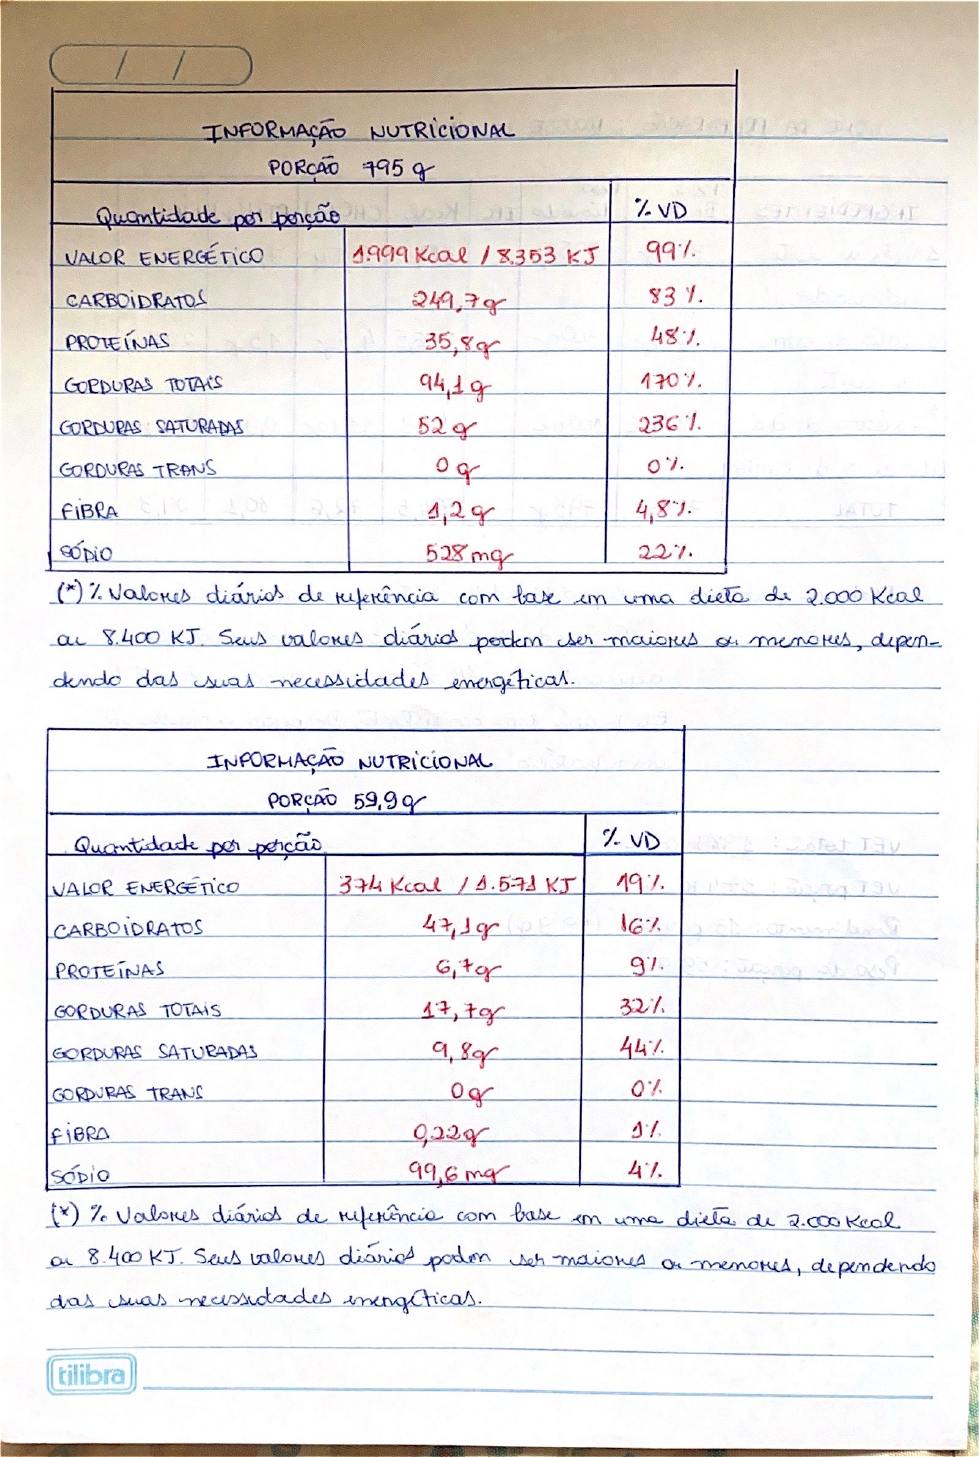 / /
INFORMAÇÃO NUTRICIONAL
PORÇÃO 795 g
Quantidade por porção % VD
VALOR ENERGÉTICO 1.999 Kcal / 8.353 KJ 99%
CARBOIDRATOS 249,7g 83%
PROTEÍNAS 35,8g 48%
GORDURAS TOTAIS 94,1g 170%
GORDURAS SATURADAS 52g 236%
GORDURAS TRANS 0g 0%
FIBRA 1,2g 4,8%
SÓDIO 528mg 22%
(*) % Valores diários de referência com base em uma dieta de 2.000 Kcal
ou 8.400 KJ. Seus valores diários podem ser maiores ou menores, depen-
dendo das suas necessidades energéticas.
INFORMAÇÃO NUTRICIONAL
PORÇÃO 59,9g
Quantidade por porção % VD
VALOR ENERGÉTICO 374 Kcal / 1.571 KJ 19%
CARBOIDRATOS 47,1g 16%
PROTEÍNAS 6,7g 9%
GORDURAS TOTAIS 17,7g 32%
GORDURAS SATURADAS 9,8g 44%
GORDURAS TRANS 0g 0%
FIBRA 0,22g 1%
SÓDIO 99,6mg 4%
(*) % Valores diários de referência com base em uma dieta de 2.000 Kcal
ou 8.400 KJ. Seus valores diários podem ser maiores ou menores, dependendo
das suas necessidades energéticas.
tilibra